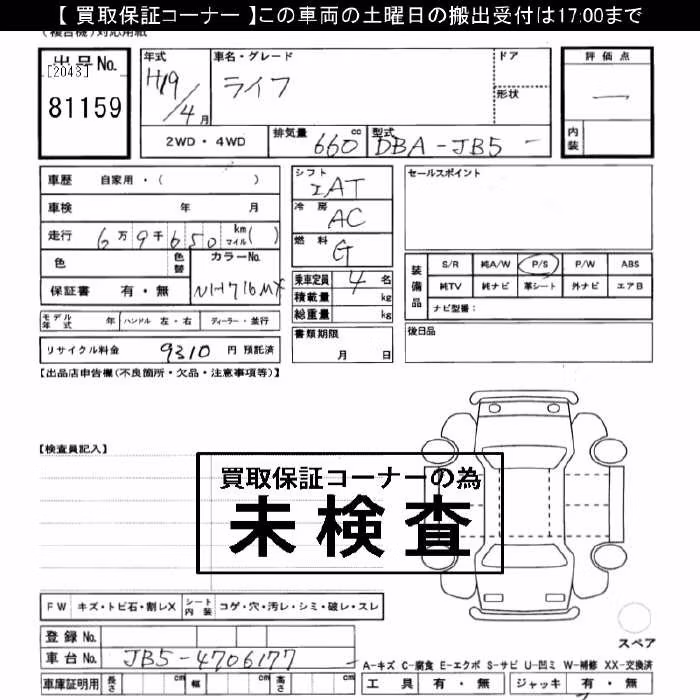 【 買取保証コーナー 】この車両の土曜日の搬出受付は17:00まで
(複合機)対応用紙
出品No.
[2043]
81159
年式
H19/4月
車名・グレード
ライフ
ドア
形状
評価点
—
内装
2WD・4WD
排気量
660cc
型式
DBA-JB5-
車歴 自家用・( )
車検 年 月
走行 6万9千650 km マイル( )
色
色替
カラーNo.
NH716MX
保証書 有・無
モデル年式 年
ハンドル 左・右
ディーラー・並行
リサイクル料金 9310 円 預託済
シフト
IAT
冷房
AC
燃料
G
乗車定員 4 名
積載量 kg
総重量 kg
書類期限
月 日
セールスポイント
装備品
S/R 純A/W P/S P/W ABS
純TV 純ナビ 革シート 外ナビ エアB
ナビ型番:
後日品
【出品店申告欄(不良箇所・欠品・注意事項等)】
【検査員記入】
買取保証コーナーの為
未検査
FW キズ・トビ石・割レX
シート内装 コゲ・穴・汚レ・シミ・破レ・スレ
スペア
登録No.
車台No. JB5-4706177
車庫証明用 長さ cm 幅 cm 高さ cm
A-キズ C-腐食 E-エクボ S-サビ U-凹ミ W-補修 XX-交換済
工具 有・無 ジャッキ 有・無